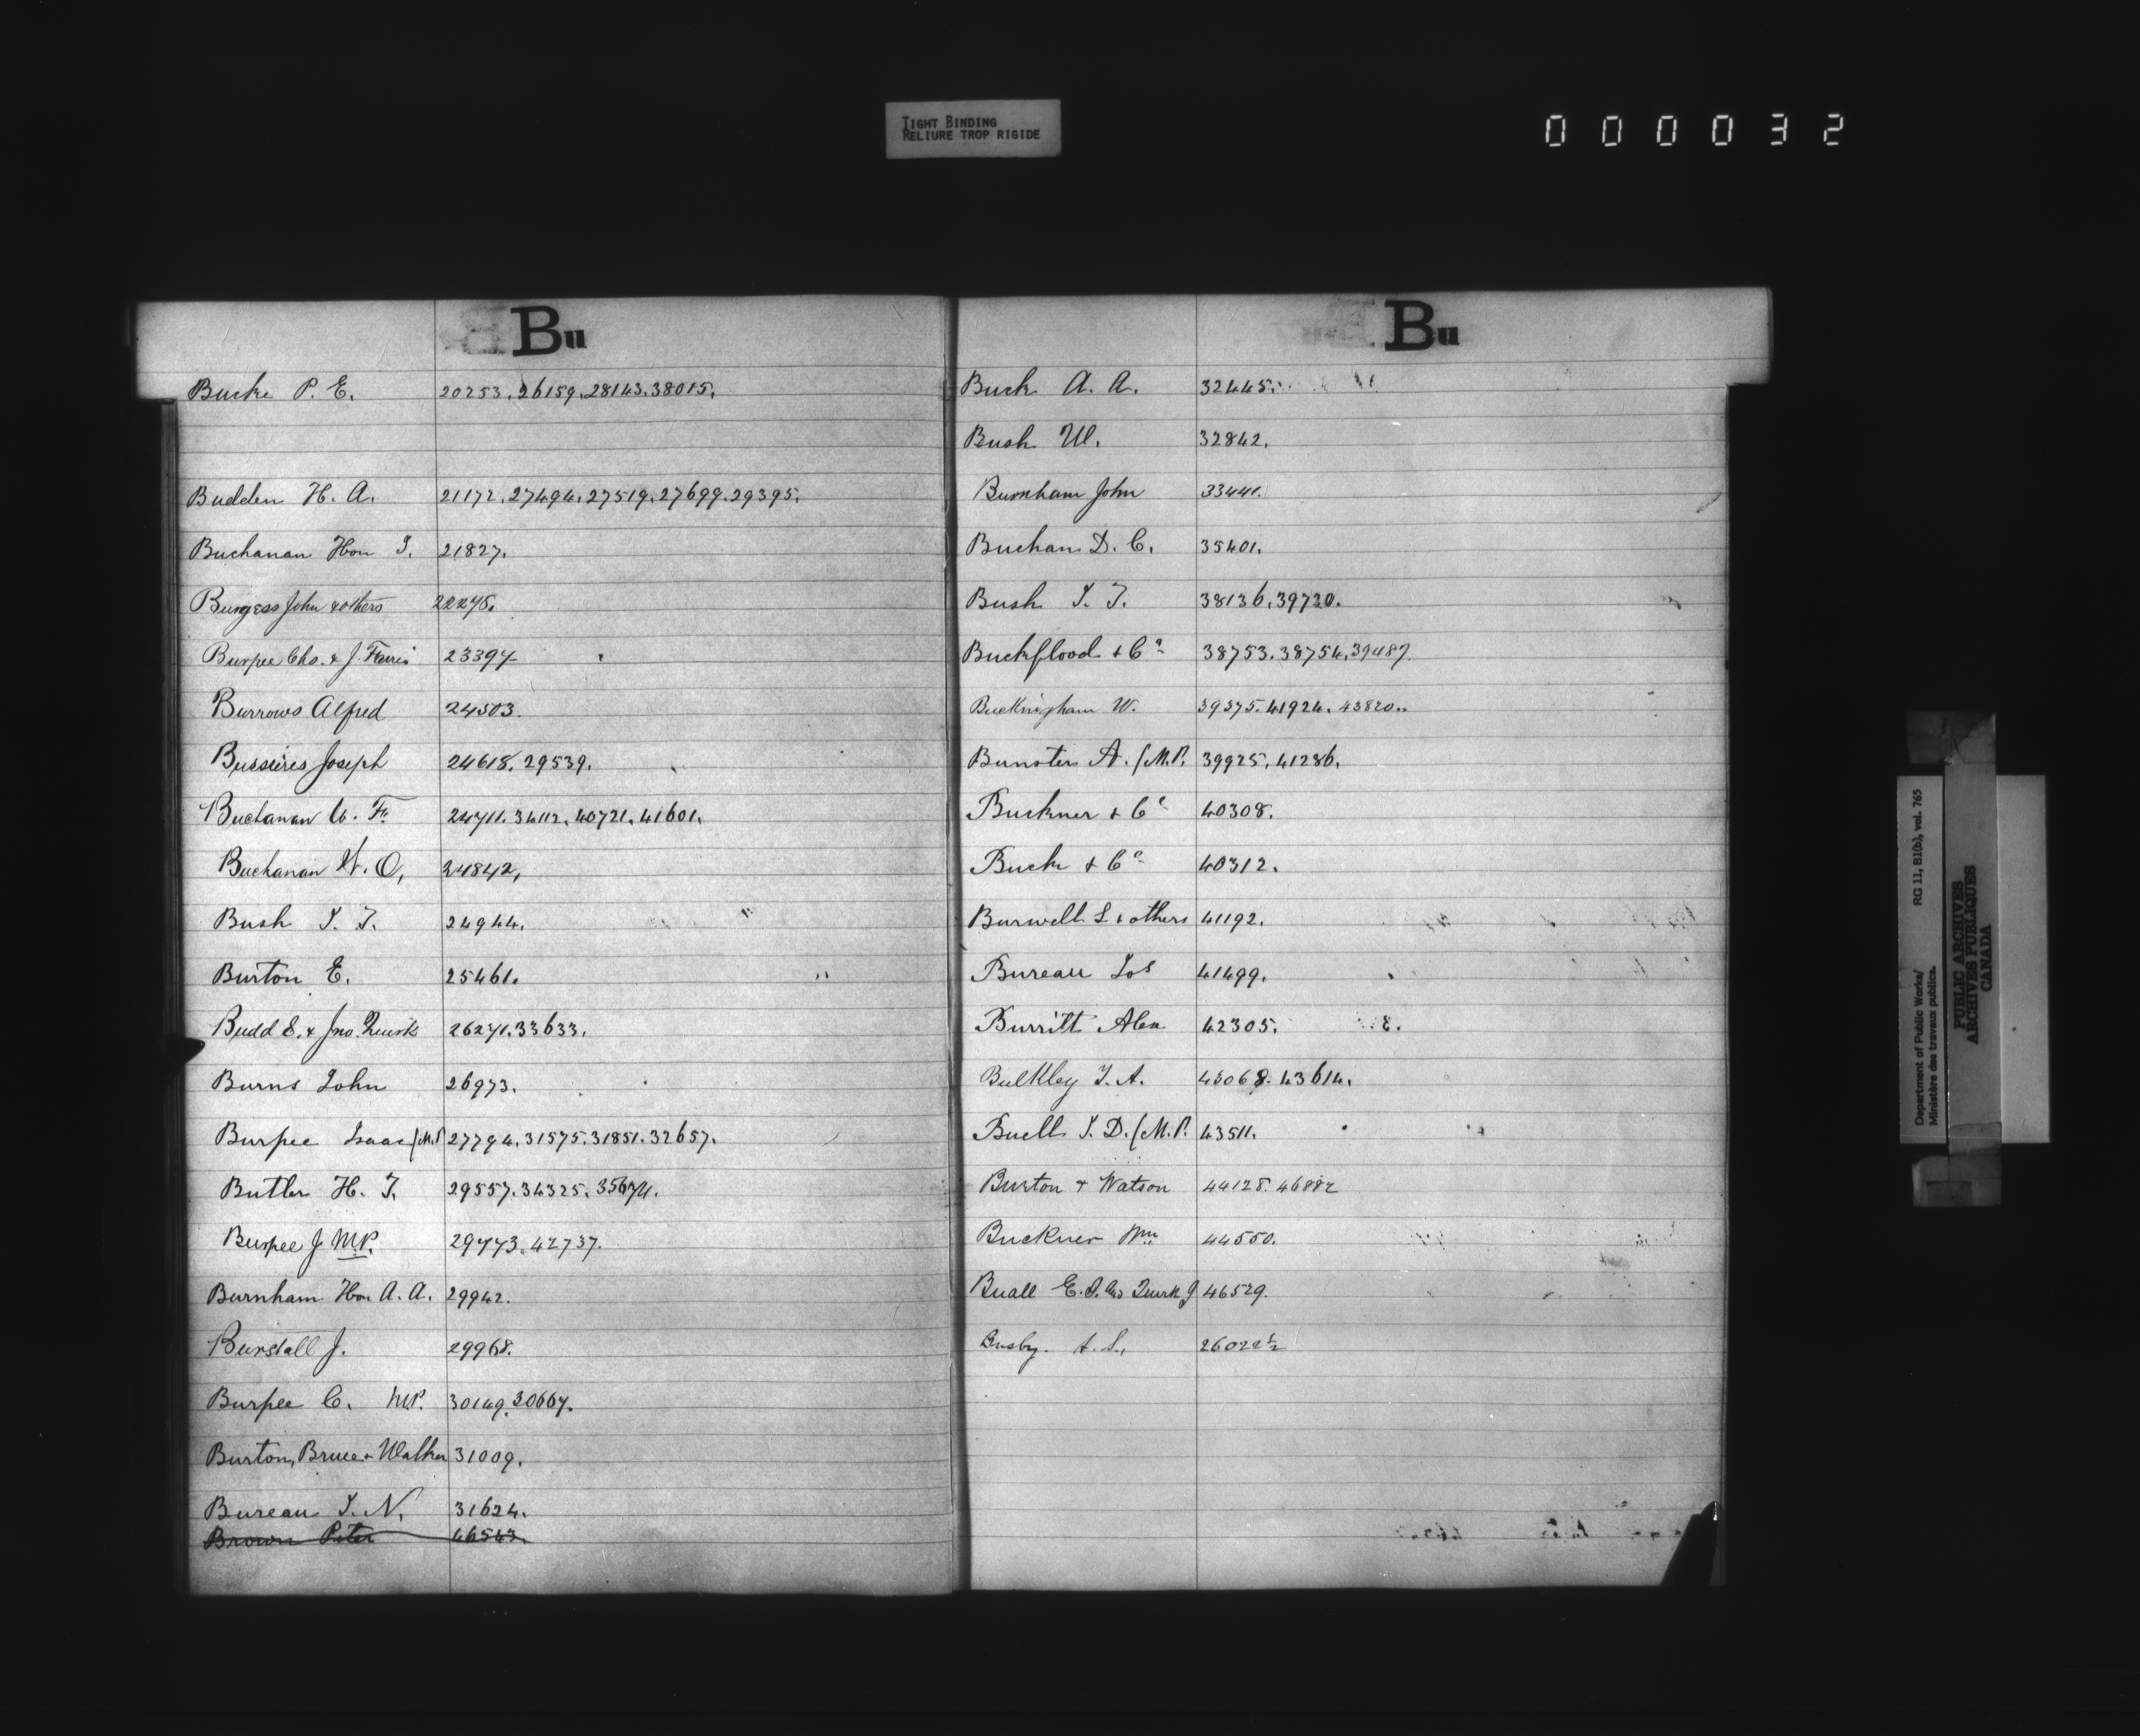 TIGHT BINDING
RELIURE TROP RIGIDE
000032
Bu
Bucke P. E. 20253. 26159. 28143. 38015.
Budden H. A. 21172. 27494. 27519. 27699. 29395.
Buchanan Hon I. 21827.
Burgess John & others 22278.
Burpee Chs. & J. Ferris 23397
Burrows Alfred 24503.
Bussières Joseph 24618. 29539.
Buchanan C. F. 24711. 34112. 40721. 41601.
Buchanan W. O. 24842,
Bush I. T. 24944.
Burton E. 25461.
Budd E. & Jno. Quirk 26271. 33633.
Burns John 26973.
Burpee Isaac (M.P. 27794. 31575. 31851. 32657.
Butler H. T. 29557. 34325. 35671.
Burpee J MP. 29773. 42737.
Burnham Hon. A. A. 29942.
Burstall J. 29968.
Burpee C. MP. 30149. 30667.
Burton, Bruce & Walker 31009.
Bureau I. N. 31624.
Brown Peter 46543.
Bu
Buck A. A. 32445.
Bush W. 32842.
Burnham John 33441.
Buchan D. C. 35401.
Bush I. T. 38136. 39730.
Buckflood & Co 38753. 38754. 39487.
Buckingham W. 39375. 41924. 43820..
Bunster A. (M.P. 39925. 41286.
Buckner & Co 40308.
Buck & Co 40312.
Burwell L & others 41192.
Bureau Jos 41499.
Burritt Alex 42305.
Bulkley I. A. 43068. 43614.
Buell I. D. (M.P. 43511.
Burton & Watson 44128. 46882
Buckner Wm 44550.
Buall E. D. and Quirk J 46529.
Busby. A. S., 26022½
Department of Public Works/ RG 11, B1(b), vol. 765
Ministère des travaux publics.
PUBLIC ARCHIVES
ARCHIVES PUBLIQUES
CANADA